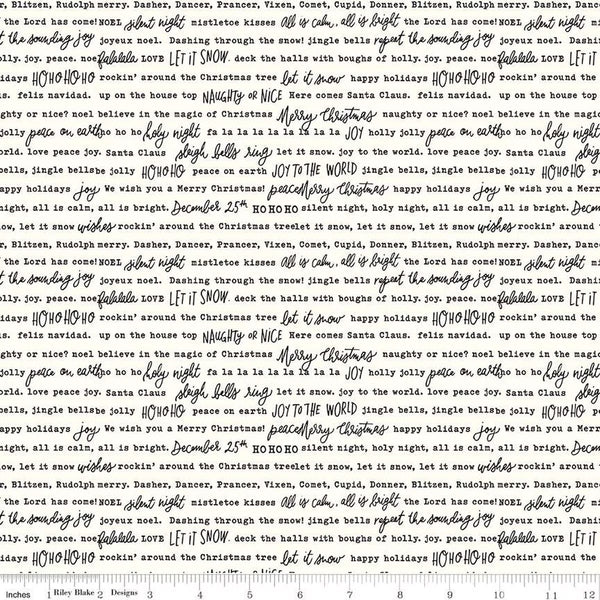 r, Blitzen, Rudolph merry. Dasher, Dancer, Prancer, Vixen, Comet, Cupid, Donner, Blitzen, Rudolph merry. Dasher, Dance
the Lord has come! NOEL silent night mistletoe kisses all is calm, all is bright the Lord has come! NOEL silent night mi
t the sounding joy joyeux noel. Dashing through the snow! jingle bells repeat the sounding joy joyeux noel. Dashin
olly. joy. peace. noe falalala LOVE LET IT SNOW. deck the halls with boughs of holly. joy. peace. noe falalala LOVE LET IT
idays HO HO HO HO rockin' around the Christmas tree let it snow happy holidays HO HO HO HO rockin' around the
s. feliz navidad. up on the house top NAUGHTY OR NICE Here comes Santa Claus. feliz navidad. up on the house top
ghty or nice? noel believe in the magic of Christmas Merry Christmas naughty or nice? noel believe in the magic
jolly peace on earth ho ho ho holy night fa la la la la la la la la JOY holly jolly peace on earth ho ho ho holy night
orld. love peace joy. Santa Claus sleigh bells ring let it snow. joy to the world. love peace joy. Santa Claus sleig
bells, jingle bells be jolly HO HO HO peace on earth JOY TO THE WORLD jingle bells, jingle bells be jolly HO HO HO pe
appy holidays joy We wish you a Merry Christmas! peace Merry Christmas happy holidays joy We wish you a M
night, all is calm, all is bright. December 25th HO HO HO silent night, holy night, all is calm, all is bright. Decem
ow, let it snow wishes rockin' around the Christmas tree let it snow, let it snow, let it snow wishes rockin' around t
r, Blitzen, Rudolph merry. Dasher, Dancer, Prancer, Vixen, Comet, Cupid, Donner, Blitzen, Rudolph merry. Dasher, Dance
the Lord has come! NOEL silent night mistletoe kisses all is calm, all is bright the Lord has come! NOEL silent night mi
t the sounding joy joyeux noel. Dashing through the snow! jingle bells repeat the sounding joy joyeux noel. Dashin
olly. joy. peace. noe falalala LOVE LET IT SNOW. deck the halls with boughs of holly. joy. peace. noe falalala LOVE LET IT
idays HO HO HO HO rockin' around the Christmas tree let it snow happy holidays HO HO HO HO rockin' around the
s. feliz navidad. up on the house top NAUGHTY OR NICE Here comes Santa Claus. feliz navidad. up on the house top
ghty or nice? noel believe in the magic of Christmas Merry Christmas naughty or nice? noel believe in the magic
jolly peace on earth ho ho ho holy night fa la la la la la la la la JOY holly jolly peace on earth ho ho ho holy night
orld. love peace joy. Santa Claus sleigh bells ring let it snow. joy to the world. love peace joy. Santa Claus sleig
bells, jingle bells be jolly HO HO HO peace on earth JOY TO THE WORLD jingle bells, jingle bells be jolly HO HO HO pe
appy holidays joy We wish you a Merry Christmas! peace Merry Christmas happy holidays joy We wish you a M
night, all is calm, all is bright. December 25th HO HO HO silent night, holy night, all is calm, all is bright. Decem
ow, let it snow wishes rockin' around the Christmas tree let it snow, let it snow, let it snow wishes rockin' around t
r, Blitzen, Rudolph merry. Dasher, Dancer, Prancer, Vixen, Comet, Cupid, Donner, Blitzen, Rudolph merry. Dasher, Dance
the Lord has come! NOEL silent night mistletoe kisses all is calm, all is bright the Lord has come! NOEL silent night mi
t the sounding joy joyeux noel. Dashing through the snow! jingle bells repeat the sounding joy joyeux noel. Dashin
olly. joy. peace. noe falalala LOVE LET IT SNOW. deck the halls with boughs of holly. joy. peace. noe falalala LOVE LET IT
idays HO HO HO HO rockin' around the Christmas tree let it snow happy holidays HO HO HO HO rockin' around the
Inches 1 Riley Blake 2 Designs 3 4 5 6 7 8 9 10 11 12